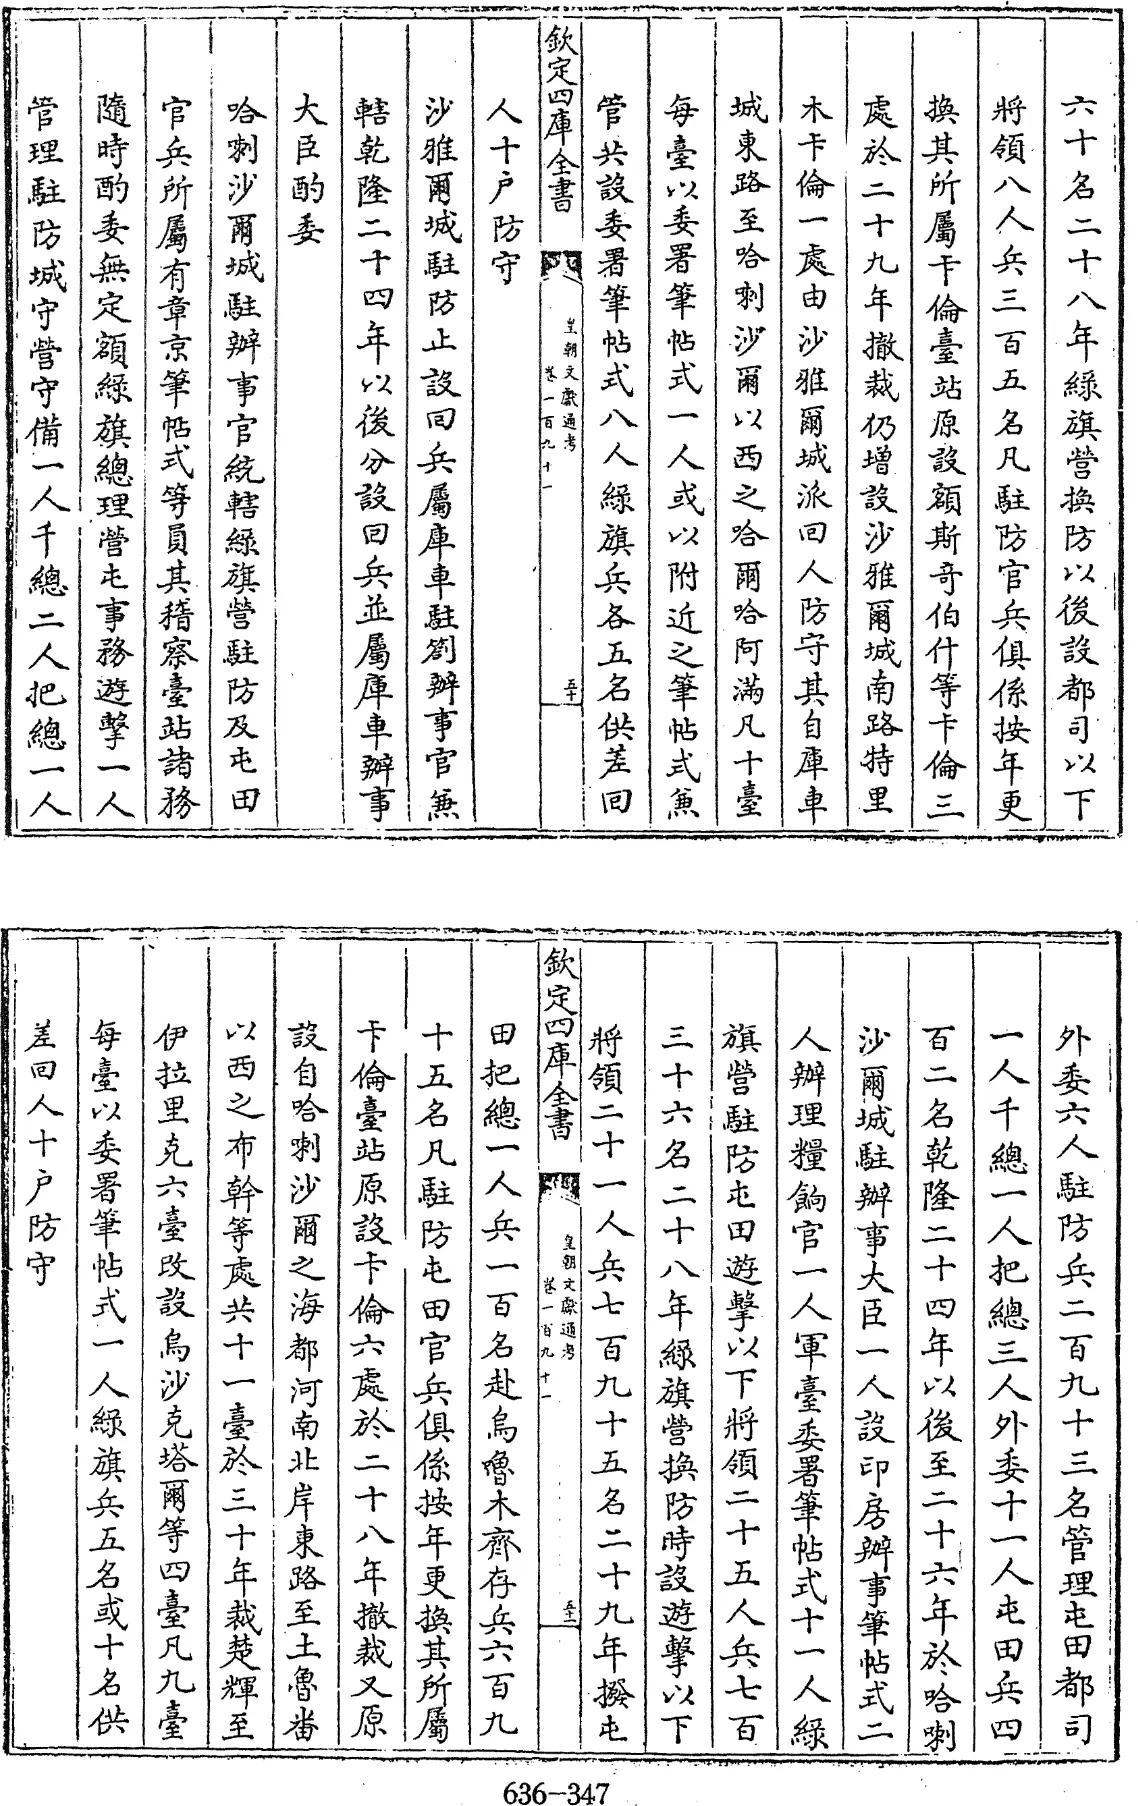 六十名二十八年綠旗營換防以後設都司以下
將領八人兵三百五名凡駐防官兵俱係按年更
換其所屬卡倫臺站原設額斯奇伯什等卡倫三
處於二十九年撤裁仍增設沙雅爾城南路特里
木卡倫一處由沙雅爾城派回人防守其自庫車
城東路至哈喇沙爾以西之哈爾哈阿滿凡十臺
每臺以委署筆帖式一人或以附近之筆帖式兼
管共設委署筆帖式八人綠旗兵各五名供差回
欽定四庫全書
皇朝文獻通考
卷一百九十一
五十
人十戶防守
沙雅爾城駐防止設回兵屬庫車駐劄辦事官兼
轄乾隆二十四年以後分設回兵並屬庫車辦事
大臣酌委
哈喇沙爾城駐辦事官統轄綠旗營駐防及屯田
官兵所屬有章京筆帖式等員其稽察臺站諸務
隨時酌委無定額綠旗總理營屯事務遊擊一人
管理駐防城守營守備一人千總二人把總一人
外委六人駐防兵二百九十三名管理屯田都司
一人千總一人把總三人外委十一人屯田兵四
百二名乾隆二十四年以後至二十六年於哈喇
沙爾城駐辦事大臣一人設印房辦事筆帖式二
人辦理糧餉官一人軍臺委署筆帖式十一人綠
旗營駐防屯田遊擊以下將領二十五人兵七百
三十六名二十八年綠旗營換防時設遊擊以下
將領二十一人兵七百九十五名二十九年撥屯
欽定四庫全書
皇朝文獻通考
卷一百九十一
五十一
田把總一人兵一百名赴烏嚕木齊存兵六百九
十五名凡駐防屯田官兵俱係按年更換其所屬
卡倫臺站原設卡倫六處於二十八年撤裁又原
設自哈喇沙爾之海都河南北岸東路至土魯番
以西之布幹等處共十一臺於三十年裁楚輝至
伊拉里克六臺改設烏沙克塔爾等四臺凡九臺
每臺以委署筆帖式一人綠旗兵五名或十名供
差回人十戶防守
636-347